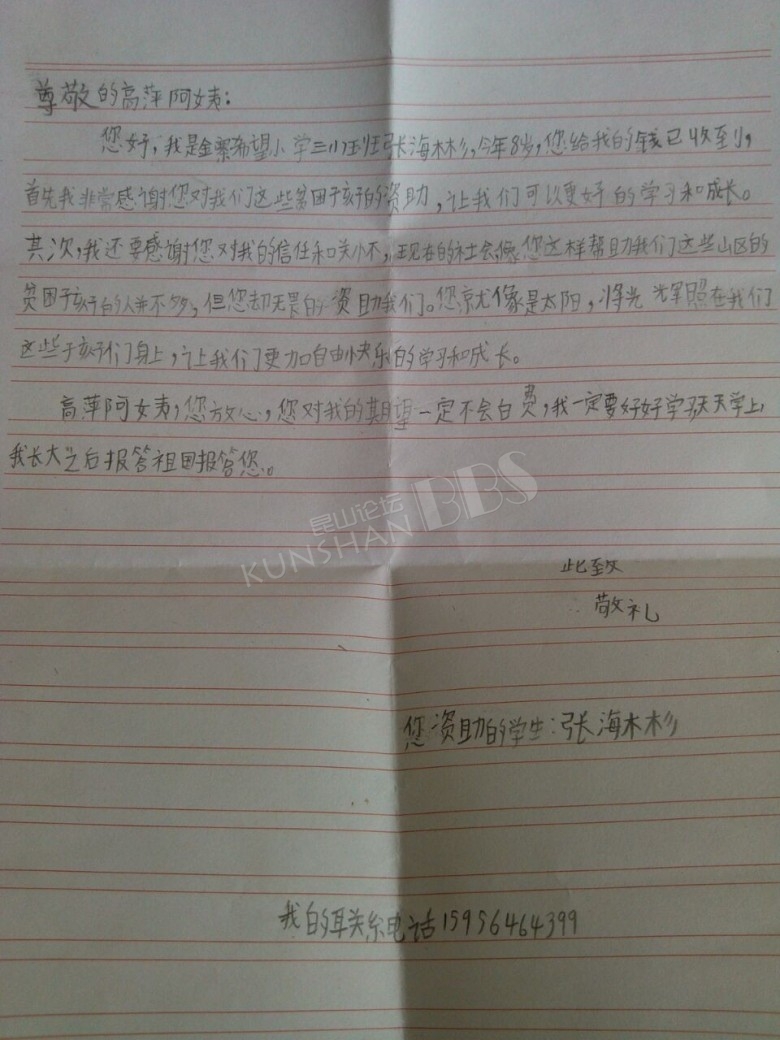 尊敬的高萍阿姨：
您好，我是金寨希望小学三(1)班张海彬，今年8岁，您给我的钱已收到，
首先我非常感谢您对我们这些贫困孩子的资助，让我们可以更好的学习和成长。
其次，我还要感谢您对我的信任和关怀，现在的社会像您这样帮助我们这些山区的
贫困孩子的人并不多，但您却无畏的资助我们。您就像是太阳，将光辉照在我们
这些孩子们身上，让我们更加自由快乐的学习和成长。
高萍阿姨，您放心，您对我的期望一定不会白费，我一定要好好学习天天学上，
我长大之后报答祖国报答您。
昆山论坛
KUNSHAN BBS
此致
敬礼
您资助的学生：张海彬
我的联系电话15956464399